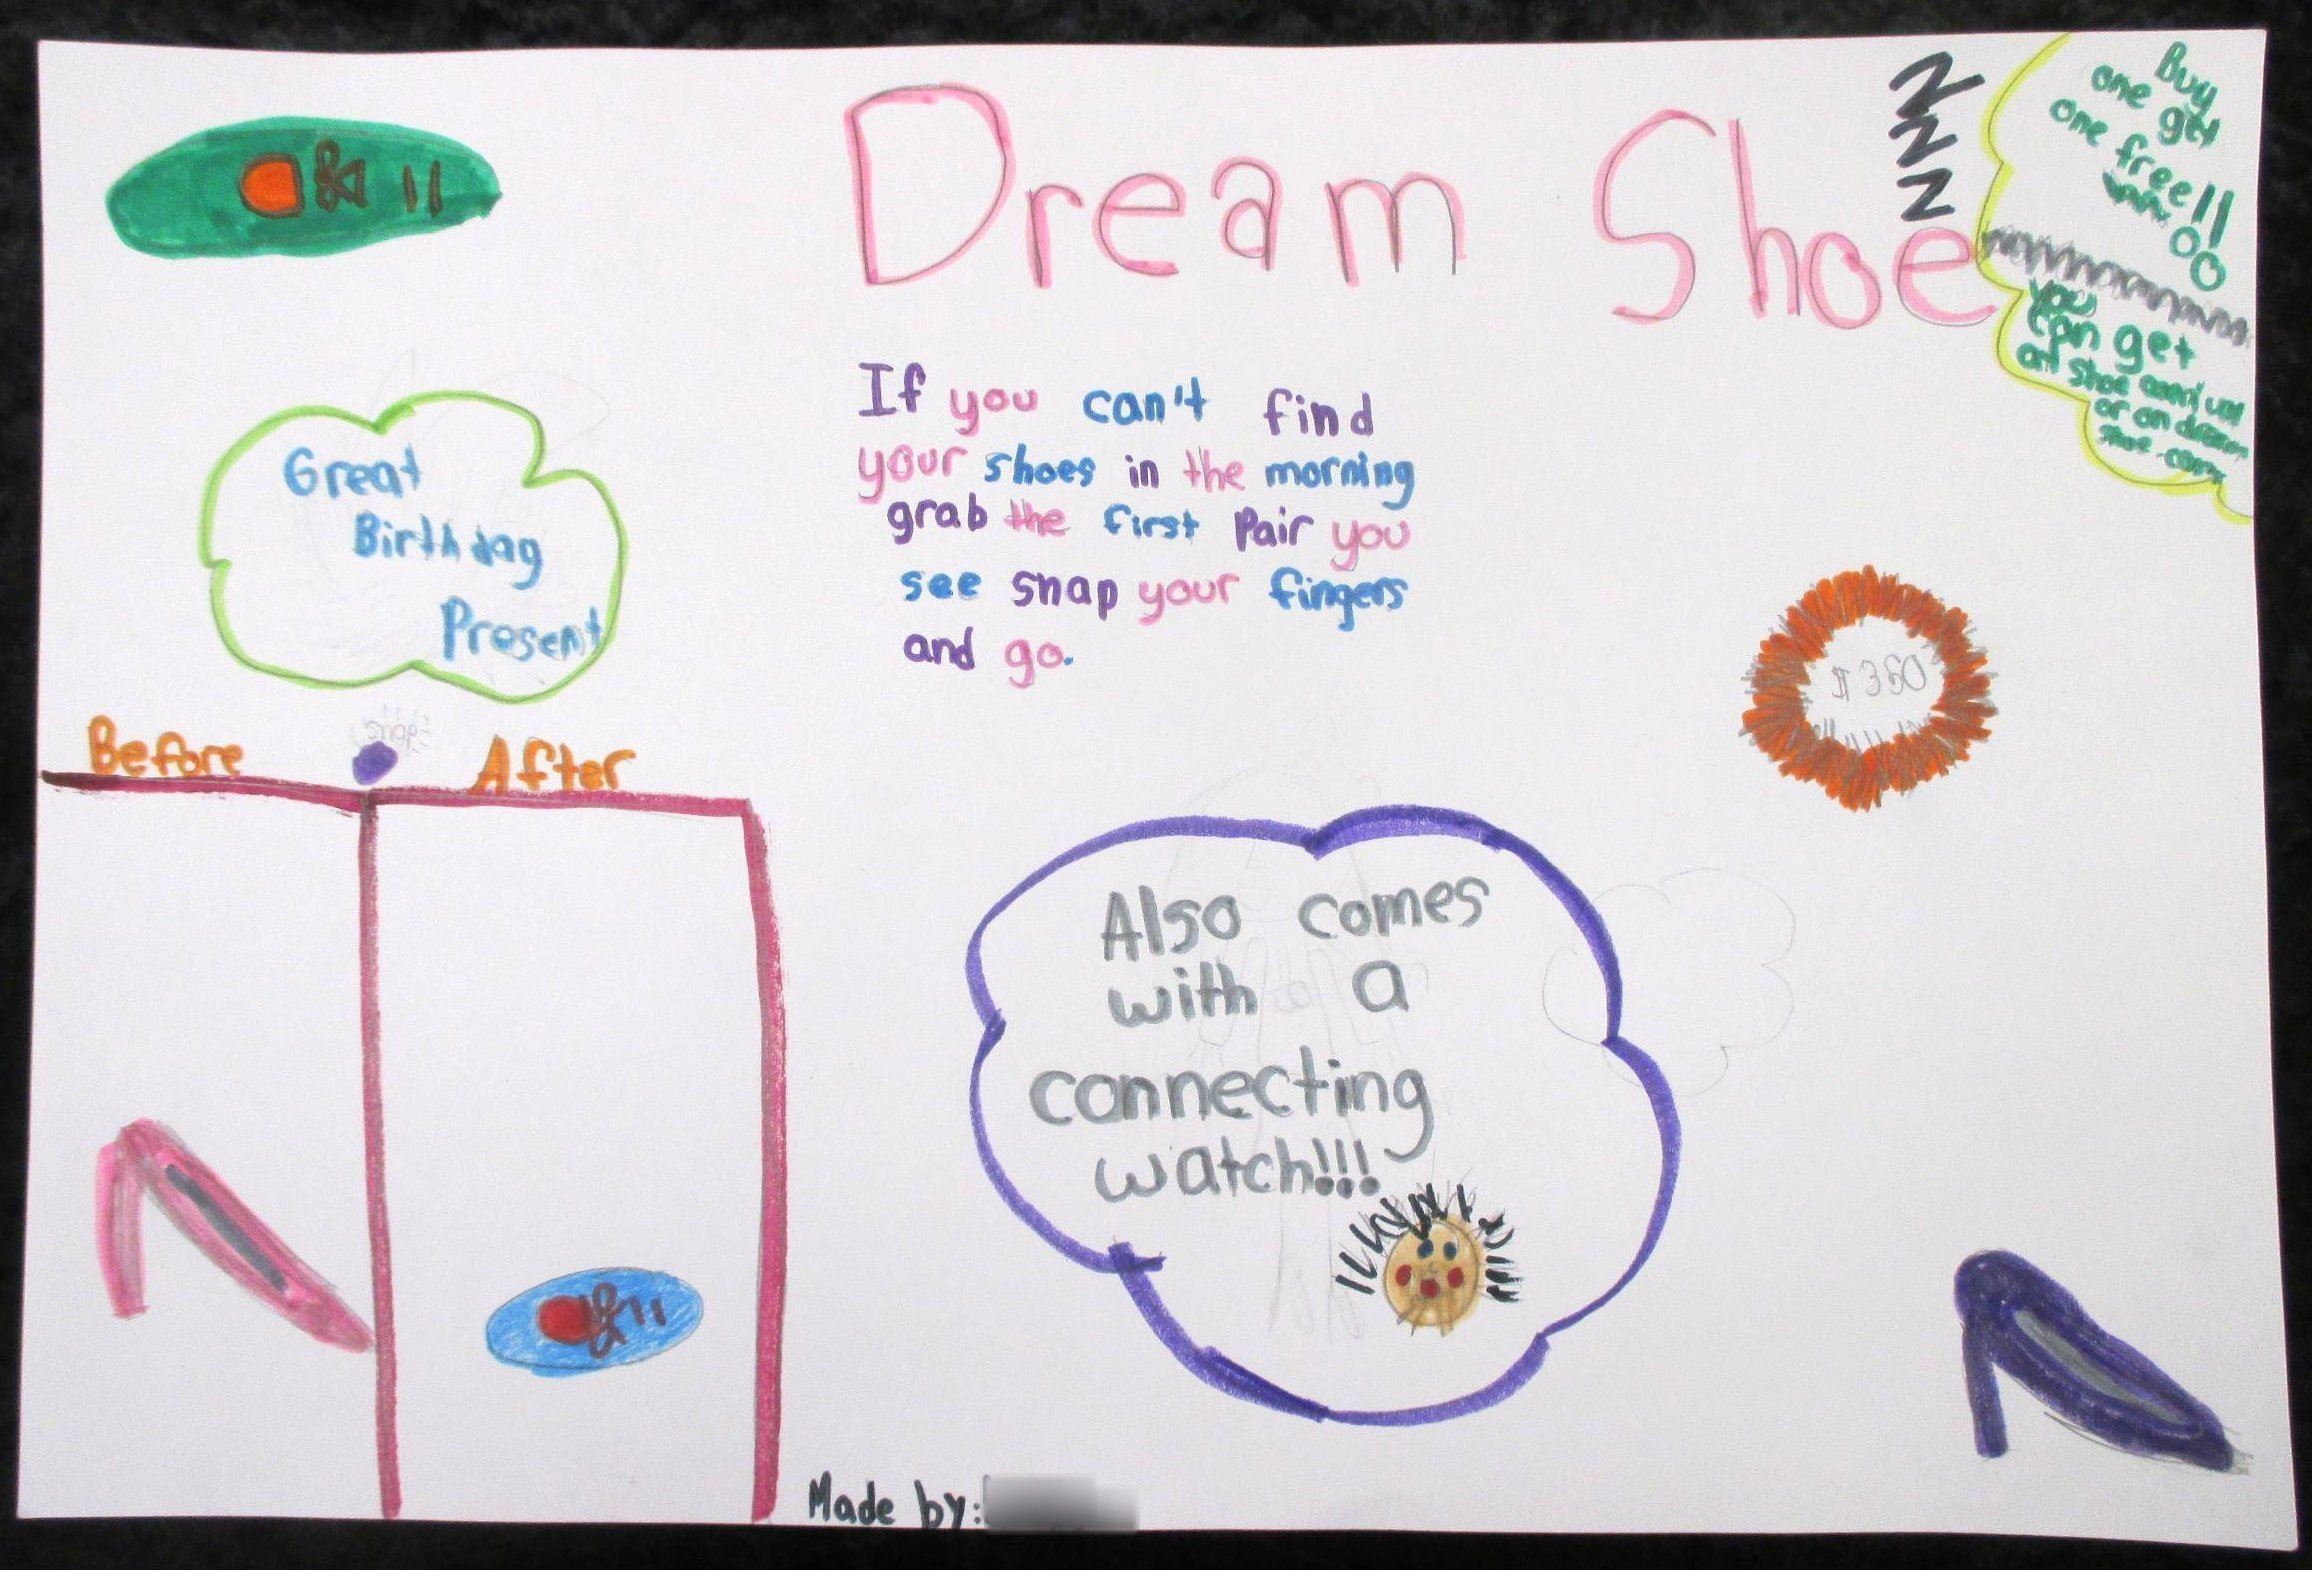 Dream Shoe
ZZZ
Buy
one get
one free!!
You
can get
at shoe
or on dream
shoe.com
If you can't find
your shoes in the morning
grab the first Pair you
see snap your fingers
and go.
Great
Birthday
Present
Before
After
Also comes
with a
connecting
watch!!!
Made by: